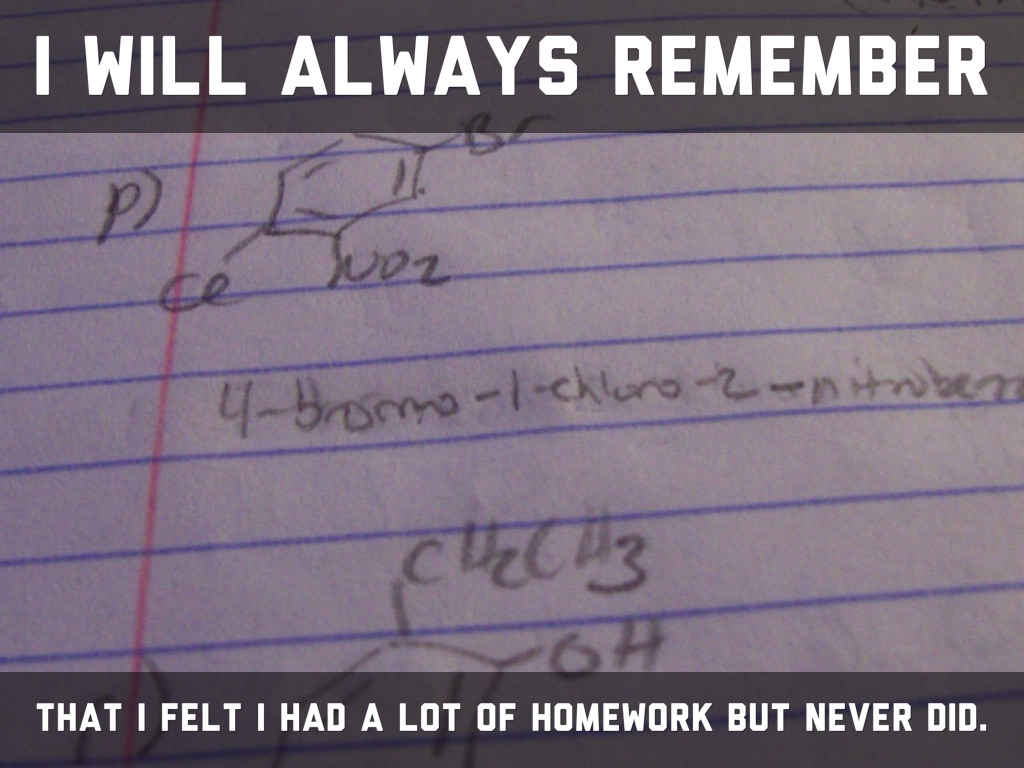 I WILL ALWAYS REMEMBER
Br
p)
Cl
NO2
4-bromo-1-chloro-2-nitroben
CH2CH3
OH
THAT I FELT I HAD A LOT OF HOMEWORK BUT NEVER DID.